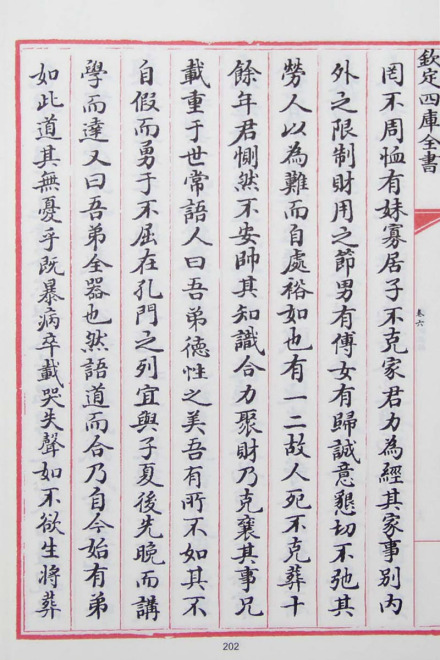 欽定四庫全書
卷六
罔不周恤有妹寡居子不克家君力為經其家事别内
外之限制財用之節男有傅女有歸誠意懇切不弛其
勞人以為難而自處裕如也有一二故人死不克葬十
餘年君惻然不安帥其知識合力聚財乃克襄其事兄
載重于世常語人曰吾弟徳性之美吾有所不如其不
自假而勇于不屈在孔門之列宜與子夏後先晩而講
學而達又曰吾弟全器也然語道而合乃自今始有弟
如此道其無憂乎既暴病卒載哭失聲如不欲生将葬
202